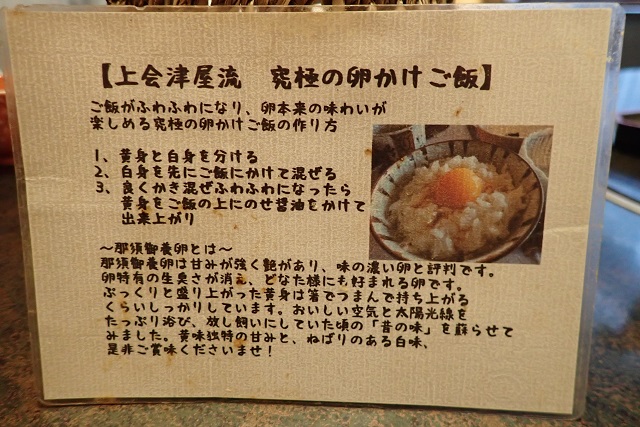 【上会津屋流　究極の卵かけご飯】
ご飯がふわふわになり、卵本来の味わいが
楽しめる究極の卵かけご飯の作り方
1、黄身と白身を分ける
2、白身を先にご飯にかけて混ぜる
3、良くかき混ぜふわふわになったら
黄身をご飯の上にのせ醤油をかけて
出来上がり
～那須御養卵とは～
那須御養卵は甘みが強く艶があり、味の濃い卵と評判です。
卵特有の生臭さが消え、どなた様にも好まれる卵です。
ぷっくりと盛り上がった黄身は箸でつまんで持ち上がる
くらいしっかりしています。おいしい空気と太陽光線を
たっぷり浴び、放し飼いにしていた頃の「昔の味」を蘇らせて
みました。黄味独特の甘みと、ねばりのある白味、
是非ご賞味くださいませ！